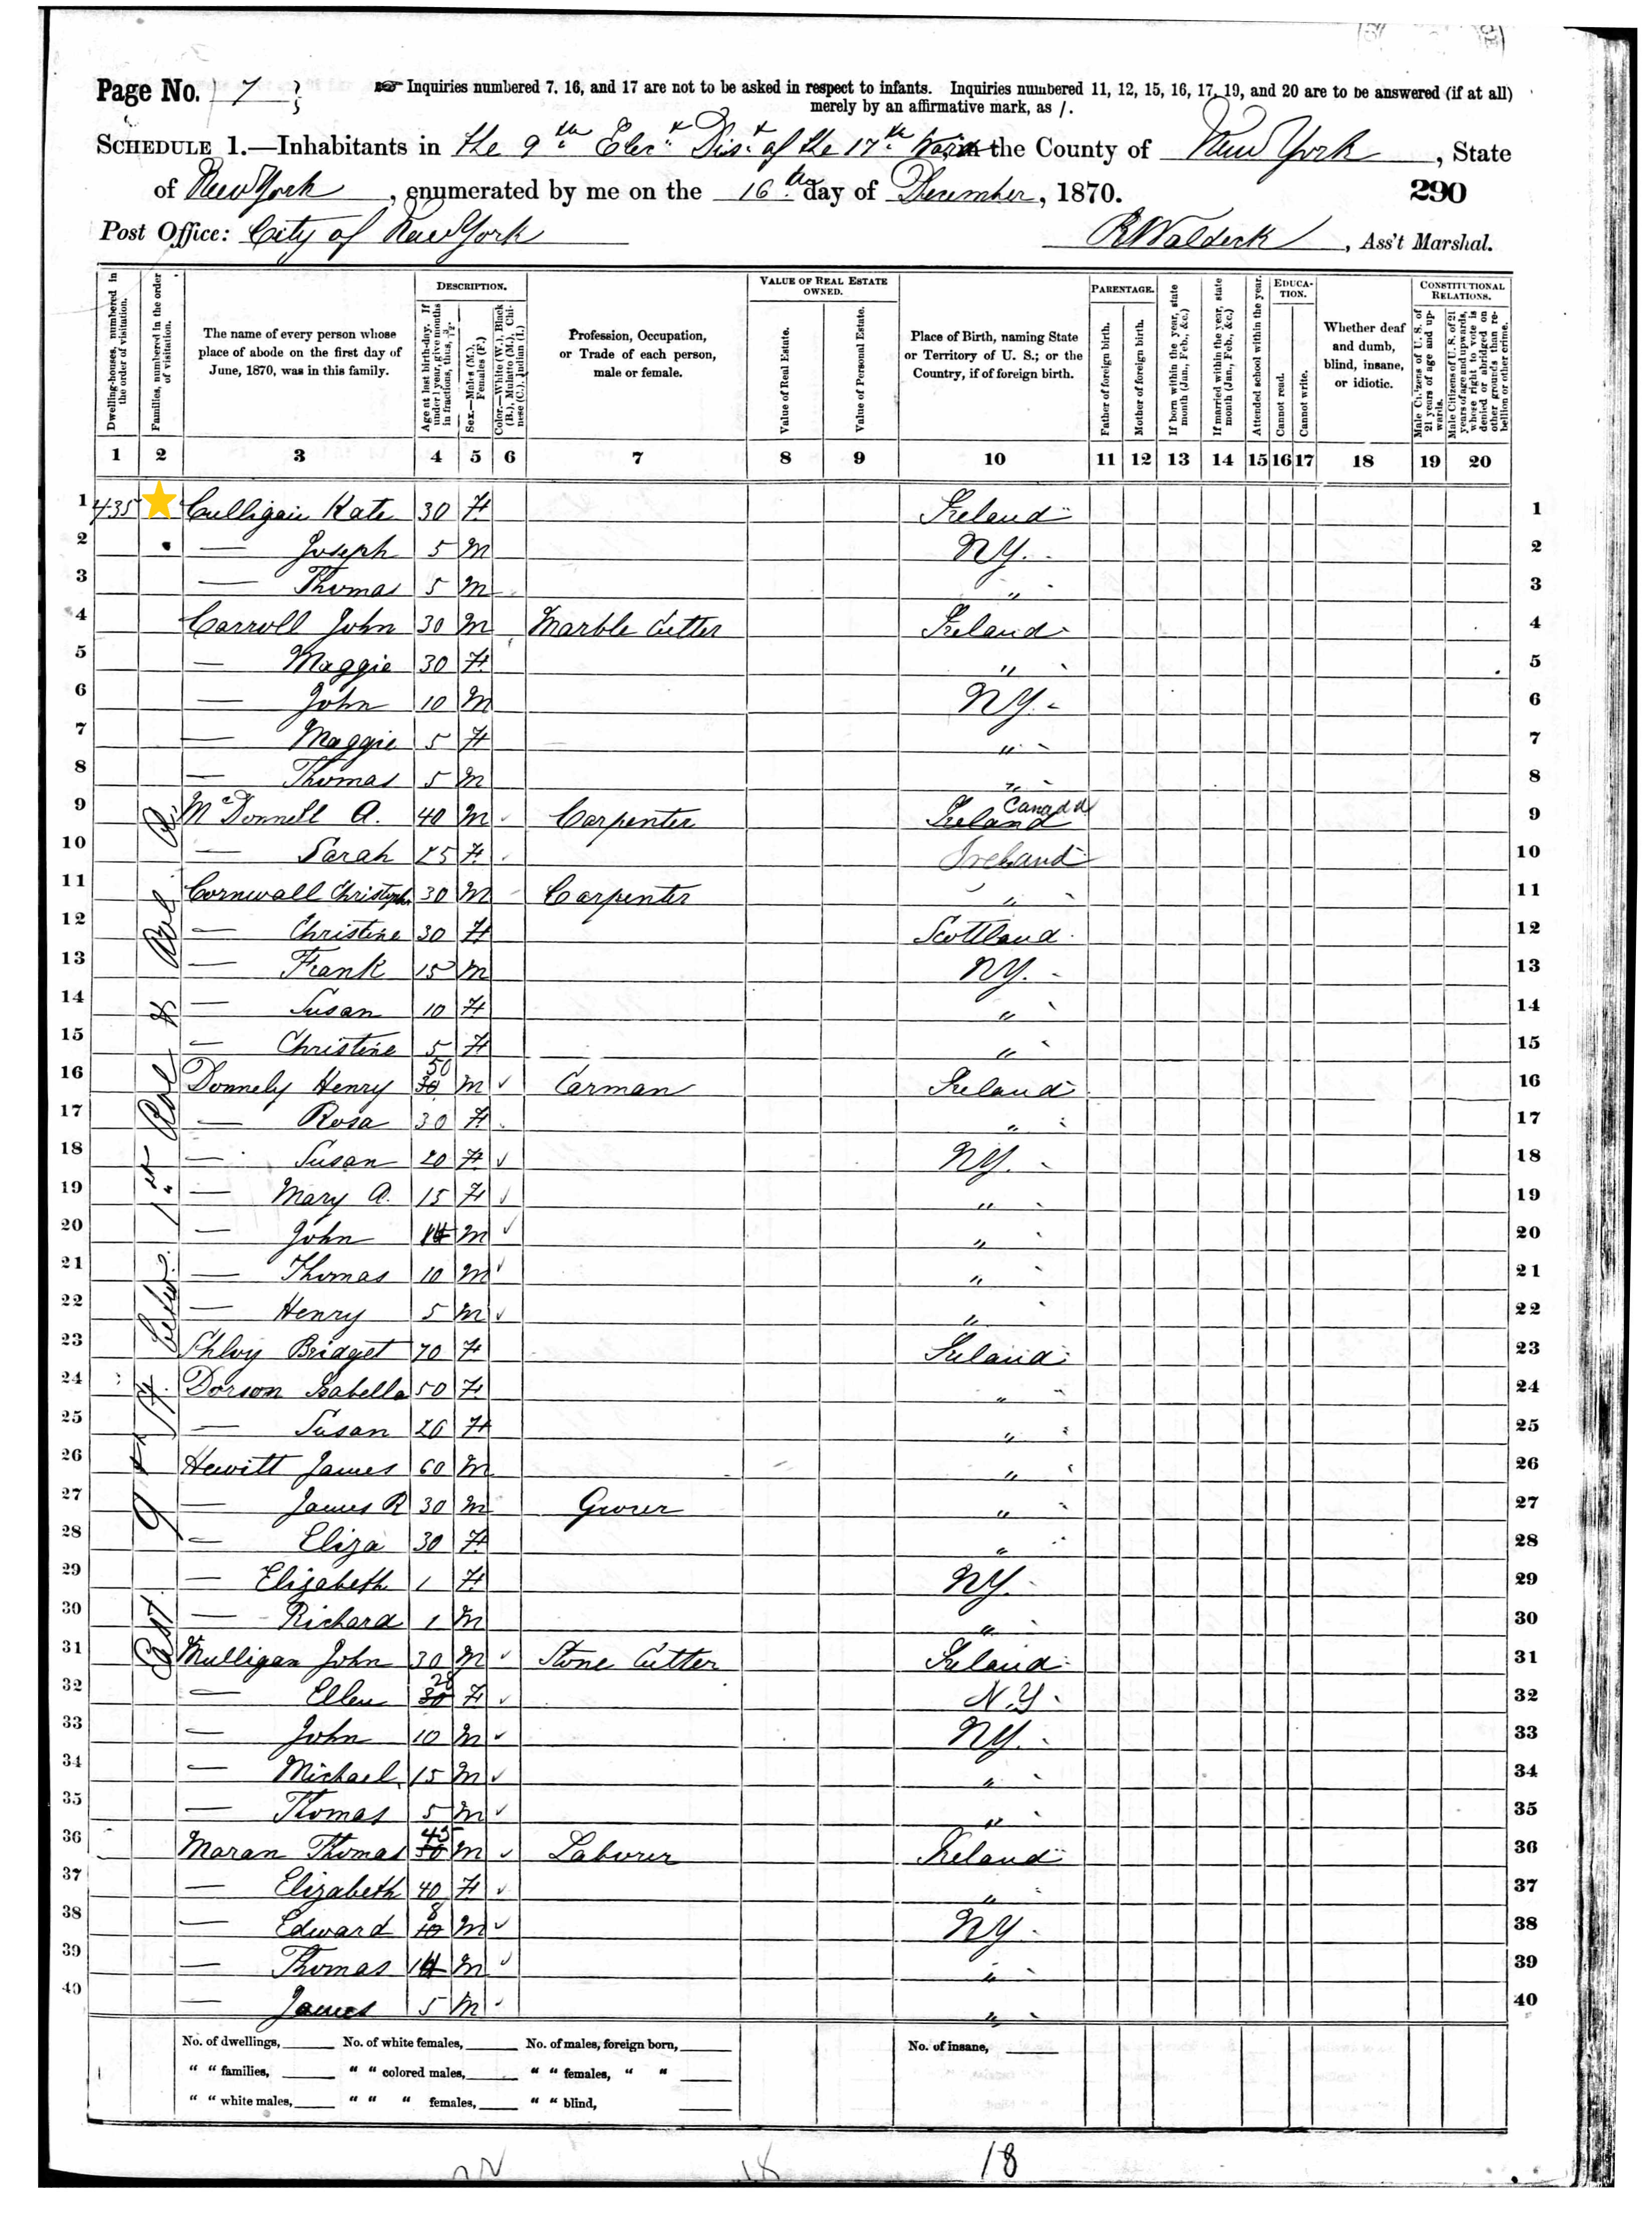 Page No. 7
Inquiries numbered 7, 16, and 17 are not to be asked in respect to infants. Inquiries numbered 11, 12, 15, 16, 17, 19, and 20 are to be answered (if at all)
merely by an affirmative mark, as /.
SCHEDULE 1.—Inhabitants in the 9th Elect. Dist. of the 17th Ward in the County of New York, State
of New York, enumerated by me on the 16th day of December, 1870. 290
Post Office: City of New York , Ass't Marshal.
Dwelling-houses, numbered in the order of visitation.
Families, numbered in the order of visitation.
The name of every person whose place of abode on the first day of June, 1870, was in this family.
DESCRIPTION.
Age at last birth-day. If under 1 year, give months in fractions, thus, 3/12.
Sex.—Males (M.), Females (F.)
Color.—White (W.), Black (B.), Mulatto (M.), Chinese (C.), Indian (I.)
Profession, Occupation, or Trade of each person, male or female.
VALUE OF REAL ESTATE OWNED.
Value of Real Estate.
Value of Personal Estate.
Place of Birth, naming State or Territory of U. S.; or the Country, if of foreign birth.
PARENTAGE.
Father of foreign birth.
Mother of foreign birth.
If born within the year, state month (Jan., Feb., &c.)
If married within the year, state month (Jan., Feb., &c.)
Attended school within the year.
EDUCATION.
Cannot read.
Cannot write.
Whether deaf and dumb, blind, insane, or idiotic.
CONSTITUTIONAL RELATIONS.
Male Citizens of U. S. of 21 years of age and upwards.
Male Citizens of U. S. of 21 years of age and upwards, whose right to vote is denied or abridged on other grounds than rebellion or other crime.
1 2 3 4 5 6 7 8 9 10 11 12 13 14 15 16 17 18 19 20
1 435 Culligan Kate 30 F Ireland 1
2 — Joseph 5 M NY. 2
3 — Thomas 5 M " 3
4 Carroll John 30 M Marble Cutter Ireland 4
5 — Maggie 30 F " 5
6 — John 10 M NY. 6
7 — Maggie 5 F " 7
8 — Thomas 5 M " 8
9 McDonnell A. 40 M Carpenter Ireland Canada 9
10 — Sarah 25 F Ireland 10
11 Cornwall Christoph 30 M Carpenter " 11
12 — Christine 30 F Scottland 12
13 — Frank 15 M NY. 13
14 — Susan 10 F " 14
15 — Christine 5 F " 15
16 Donnely Henry 50 M Carman Ireland 16
17 — Rosa 30 F " 17
18 — Susan 20 F NY. 18
19 — Mary A. 15 F " 19
20 — John 14 M " 20
21 — Thomas 10 M " 21
22 — Henry 5 M " 22
23 Bridget 70 F Ireland 23
24 Dorson Isabella 50 F " 24
25 — Susan 20 F " 25
26 Hewitt James 60 M " 26
27 — James R 30 M Grocer " 27
28 — Eliza 30 F " 28
29 — Elizabeth 1 F NY. 29
30 — Richard 1 M " 30
31 Mulligan John 30 M Stone Cutter Ireland 31
32 — Ellen 28 F N.Y. 32
33 — John 10 M NY. 33
34 — Michael 15 M " 34
35 — Thomas 5 M " 35
36 Maran Thomas 45 M Laborer Ireland 36
37 — Elizabeth 40 F " 37
38 — Edward 8 M NY. 38
39 — Thomas 14 M " 39
40 — James 5 M " 40
East 9th St. betw. 1st Av. &
No. of dwellings, No. of white females, No. of males, foreign born, No. of insane,
" " families, " " colored males, " " females, " "
" " white males, " " " females, " " blind,
18